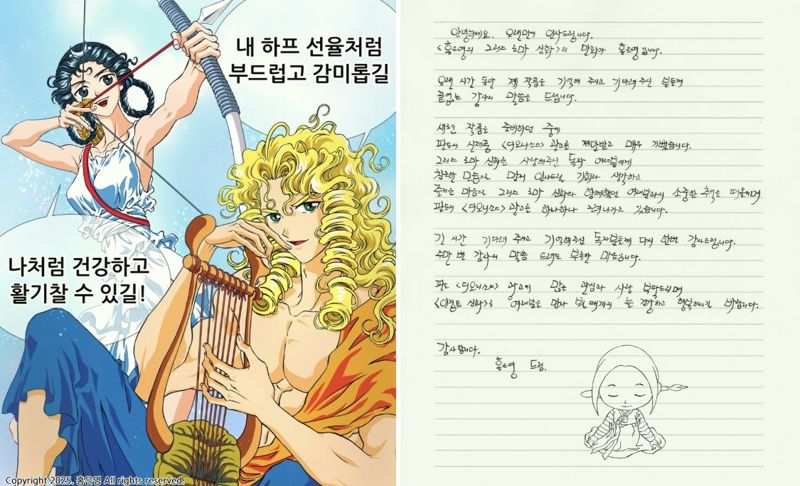 내 하프 선율처럼
부드럽고 감미롭길
나처럼 건강하고
활기찰 수 있길!
Copyright 2025. 홍은영 All rights reserved.
안녕하세요. 오랜만에 인사드립니다.
<홍은영의 그리스 로마 신화>의 만화가 홍은영 입니다.
오랜 시간 동안 제 작품을 기억해 주시고 기다려주신 분들께
끝없는 감사의 말씀을 드립니다.
새로운 작품을 준비하던 중에
신제품 <디오니소스> 광고를 제안받고 매우 기뻤습니다.
그리스 로마 신화를 사랑해주신 독자 여러분에게
모습으로 먼저 인사드릴 기회라 생각하고
즐거운 마음으로 그리스 로마 신화와 함께했던 여러분과의 소중한 추억을 떠올리며
<디오니소스> 광고를 하나하나 그려나가고 있습니다.
긴 시간 기다려 주시고 기억해주신 독자분들께 다시 한번 감사드립니다.
수만 번 감사의 말씀을 드려도 부족한 마음입니다.
<디오니소스> 광고에 많은 관심과 사랑 부탁드리며
<이집트 신화>로 여러분을 만나 뵐 때까지 늘 건강하고 행복하시길 바랍니다.
감사합니다.
홍은영 드림.